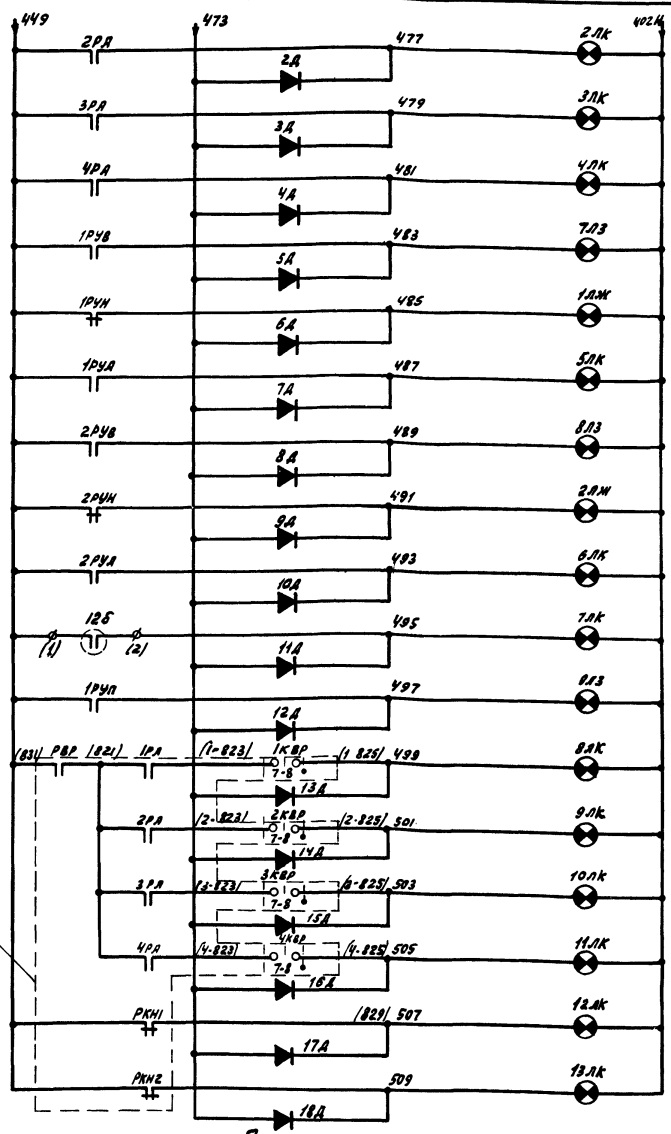 449 473 402Н
2РА 477 2ЛК
2Д
3РА 479 3ЛК
3Д
4РА 481 4ЛК
4Д
1РУВ 483 7ЛЗ
5Д
1РУН 485 1ЛЖ
6Д
1РУА 487 5ЛК
7Д
2РУВ 489 8ЛЗ
8Д
2РУН 491 2ЛЖ
9Д
2РУА 493 6ЛК
10Д
(1) 12Б (2) 495 7ЛК
11Д
1РУП 497
12Д
(831) РВР (821) 1РА (1-823) 1КВР (1-825) 499 8ЛК
7-8
13Д
2РА (2-823) 2КВР (2-825) 501 9ЛК
7-8
14Д
3РА (3-823) 3КВР (3-825) 503 10ЛК
7-8
15Д
4РА (4-823) 4КВР (4-825) 505 11ЛК
7-8
16Д
РКН1 (829) 507 12ЛК
17Д
РКН2 509 13ЛК
18Д